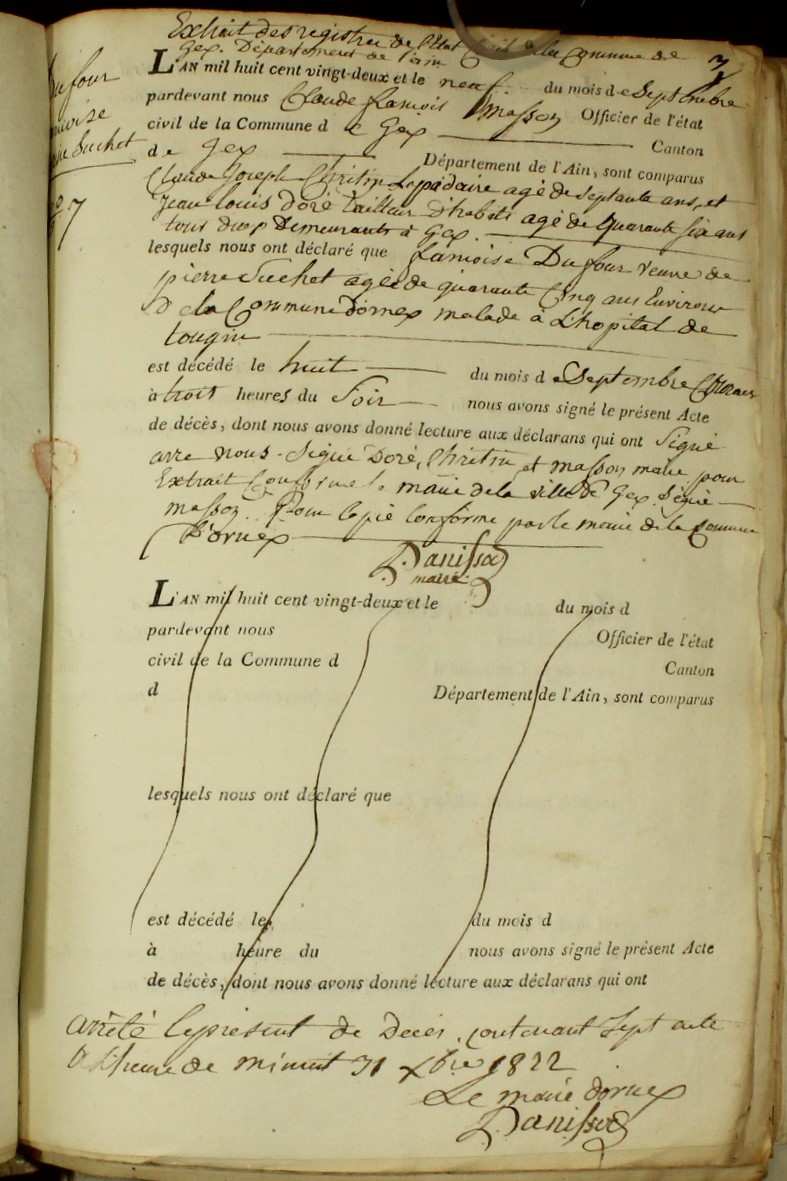 Extrait des registres de l'Etat Civil de la Commune de
Gex. Département de l'ain
7
Dufour
Suchet
7
L'AN mil huit cent vingt-deux et le neuf du mois d e Septembre
pardevant nous Claude françois Masson Officier de l'état
civil de la Commune d e Gex Canton
de Gex Département de l'Ain, sont comparus
Claude Joseph Christin Lapidaire agé de Septante ans, et
Jean louis Doré tailleur D'habits agé de Quarante six ans
tous deux Demeurants à Gex.
lesquels nous ont déclaré que françoise Dufour veuve de
pierre Suchet agée de quarante Cinq ans Environ
D la Commune Dornex malade à L'hopital de
tougin
est décédé le huit du mois d e Septembre Courant
à trois heures du Soir nous avons signé le présent Acte
de décès, dont nous avons donné lecture aux déclarans qui ont Signé
avec nous. Signé Doré, Christin, et masson maire pour
Extrait Conforme le maire de la ville de Gex Signé
masson. Pour Copie Conforme par le maire de la Commune
D'ornex
Danissod
maire
L'AN mil huit cent vingt-deux et le du mois d
pardevant nous Officier de l'état
civil de la Commune d Canton
d Département de l'Ain, sont comparus
lesquels nous ont déclaré que
est décédé le du mois d
à heure du nous avons signé le présent Acte
de décès, dont nous avons donné lecture aux déclarans qui ont
arrêté le présent de Décès, contenant Sept acte
à L'heure de minuit 31 xbre 1822
Le maire dornex
Danissod